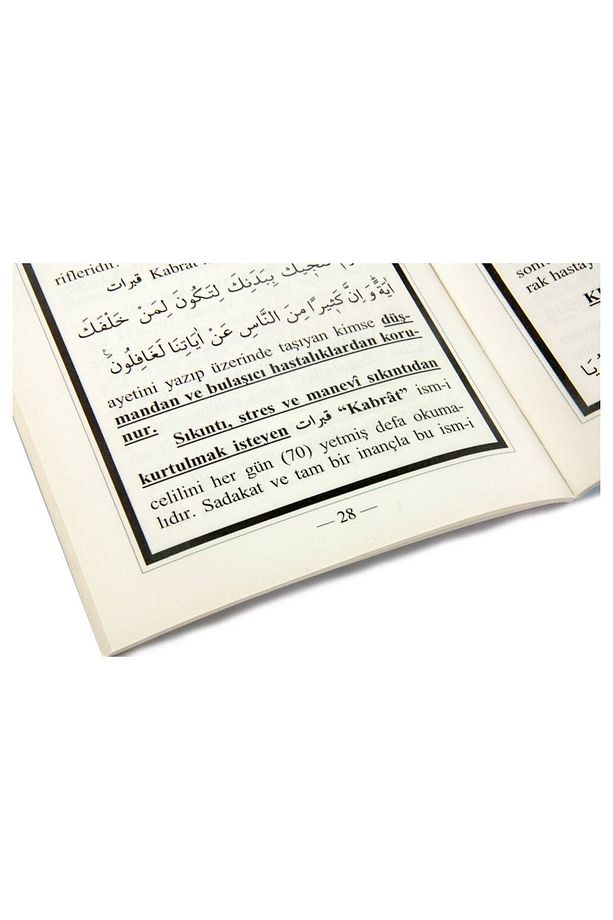 rifleridir.
قبرات Kabrat
نُنَجِّيكَ بِبَدَنِكَ لِتَكُونَ لِمَنْ خَلْفَكَ
اٰيَةً وَاِنَّ كَثِيرًا مِنَ النَّاسِ عَنْ اٰيَاتِنَا لَغَافِلُونَ
ayetini yazıp üzerinde taşıyan kimse düş-
mandan ve bulaşıcı hastalıklardan koru-
nur.
Sıkıntı, stres ve manevî sıkıntıdan
kurtulmak isteyen قبرات “Kabrât” ism-i
celilini her gün (70) yetmiş defa okuma-
lıdır. Sadakat ve tam bir inançla bu ism-i
— 28 —
rak hasta